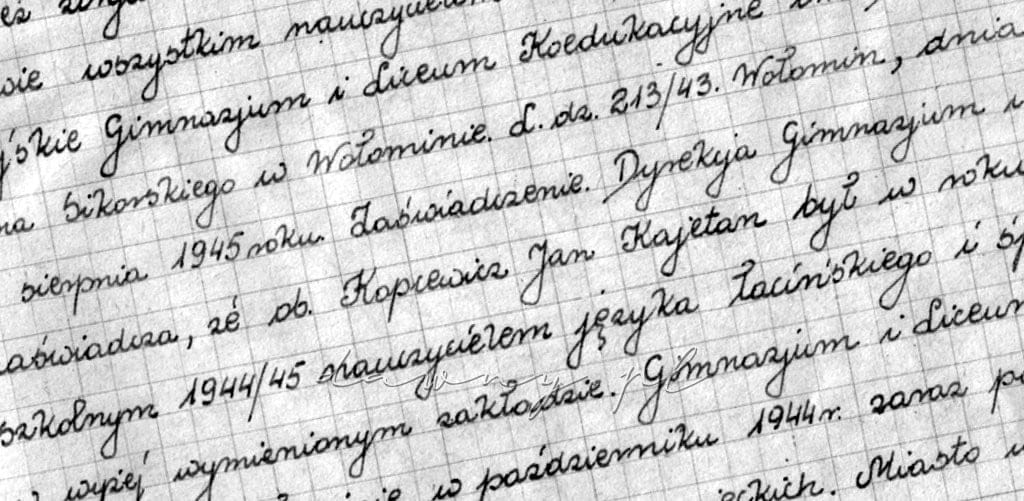 wszystkim
Gimnazjum i Liceum Koedukacyjne
Sikorskiego w Wołominie. L. dz. 213/43. Wołomin, dnia
sierpnia 1945 roku. Zaświadczenie. Dyrekcja Gimnazjum i
zaświadcza, że ob. Kopcewicz Jan Kajetan był w roku
szkolnym 1944/45 nauczycielem języka łacińskiego i
wyżej wymienionym zakładzie. Gimnazjum i Liceum
w październiku 1944 r. zaraz
Miasto